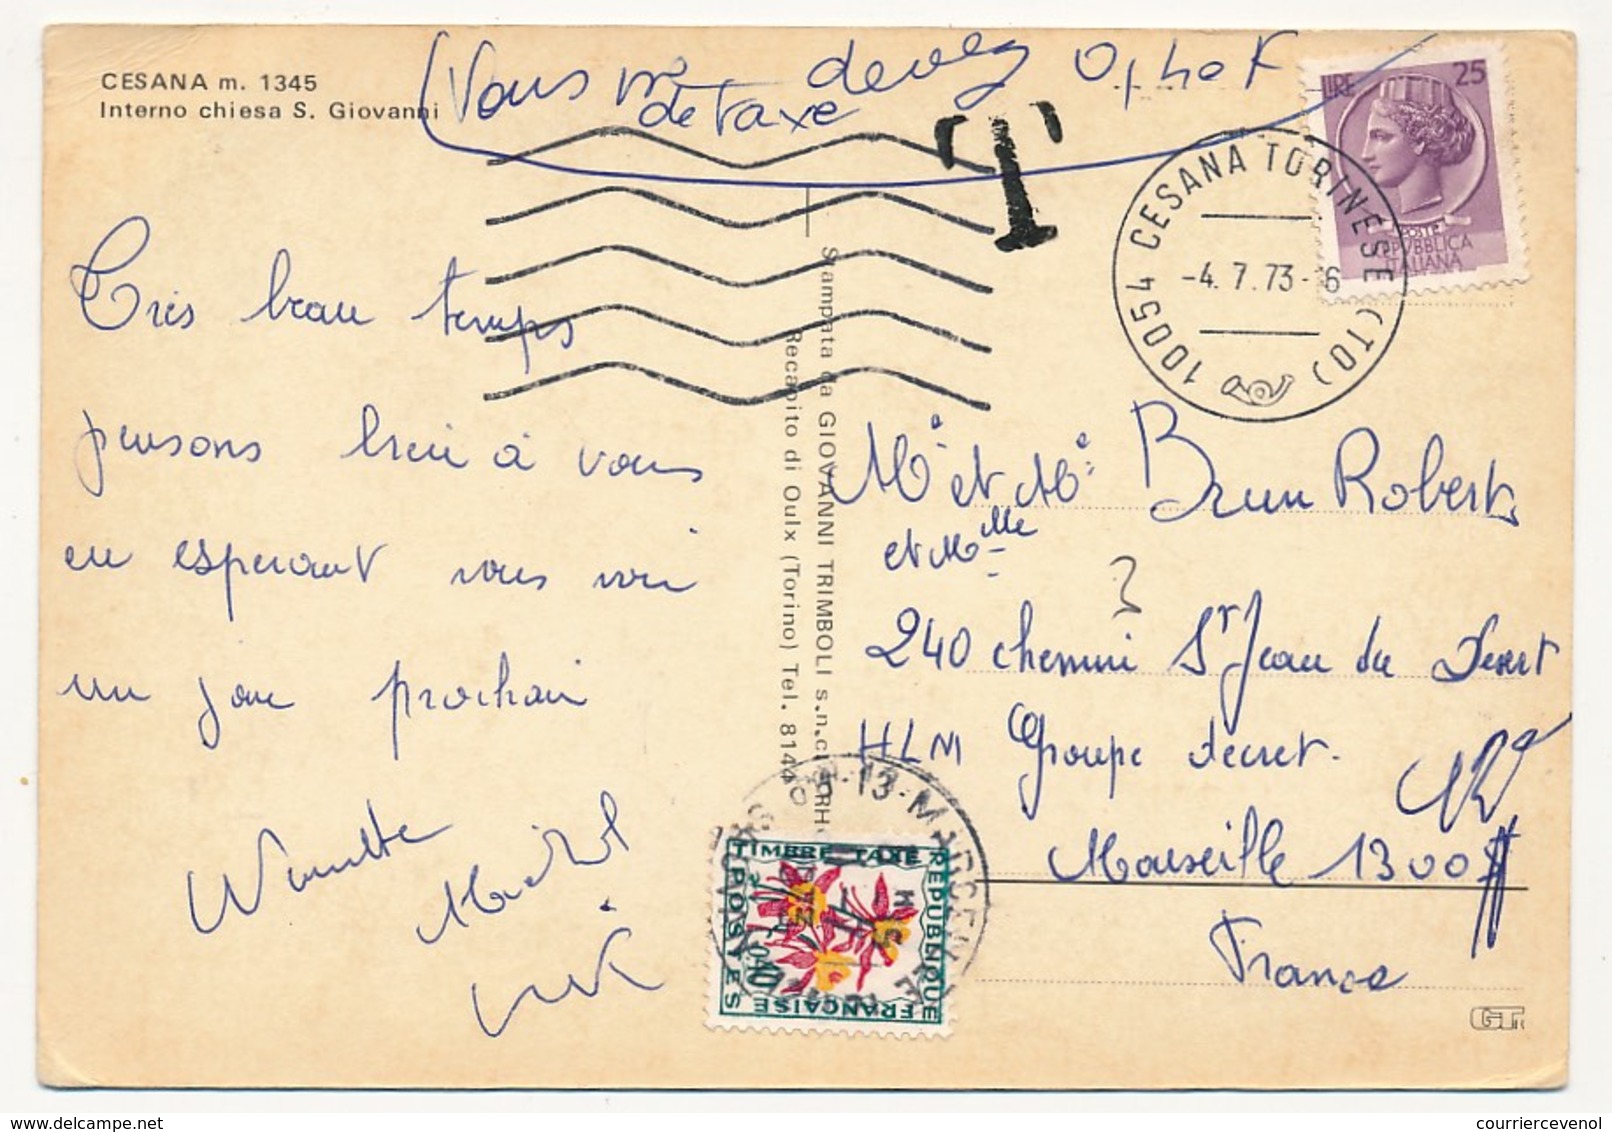 CESANA m. 1345
Interno chiesa S. Giovanni
(Vous m devez 0,40F
de taxe
T
LIRE 25
POSTE
REPVBBLICA
ITALIANA
10054 CESANA TORINESE (TO)
-4.7.73-6
Très beau temps
pensons bien à vous
en esperant vous voir
un jour prochain
Stampata da GIOVANNI TRIMBOLI s.n.c.
Recapito di Oulx (Torino) Tel. 8144
Mr et Me Brun Robert
et Mlle
?
240 chemin St Jean du Desert
HLM Groupe decret.
Marseille 1300
France
TIMBRE TAXE
REPUBLIQUE
FRANÇAISE
POSTES
0,40
13-MARSEILLE
GT
www.delcampe.net
courriercevenol